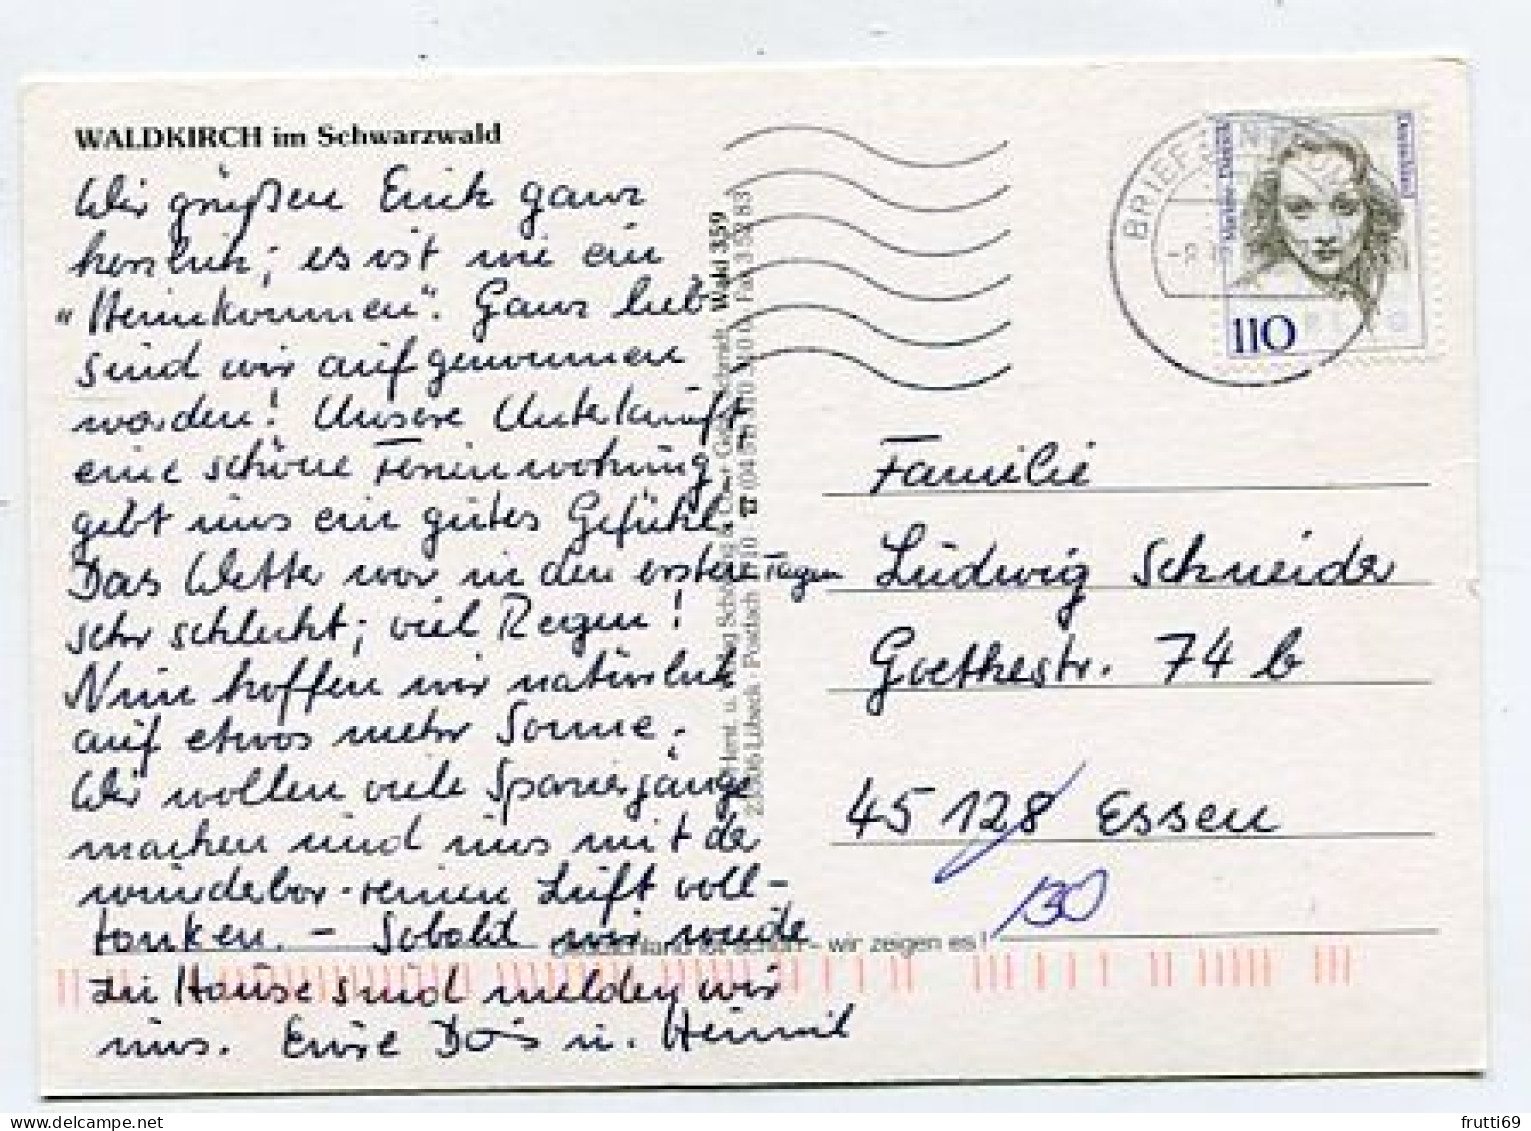 WALDKIRCH im Schwarzwald
Wir grüßen Euch ganz
herzlich; es ist wie ein
"Heimkommen". Ganz lieb
sind wir aufgenommen
worden! Unsere Unterkunft
eine schöne Ferienwohnung
gibt uns ein gutes Gefühl.
Das Wetter war in den ersten Tagen
sehr schlecht; viel Regen!
Nun hoffen wir natürlich
auf etwas mehr Sonne.
Wir wollen viele Spaziergänge
machen und uns mit der
wunderbar-reinen Luft voll-
tanken. - Sobald wir wieder
zu Hause sind melden wir
uns. Eure Doris u. Helmut
Wald 359
Herst. u. Verlag Schöning & Co + Gebr. Schmidt
Lübeck · Postfach
Deutschland ist schön - wir zeigen es!
BRIEFZENTRUM
Marlene Dietrich
Deutschland
110
Familie
Ludwig Schneider
Goethestr. 74 b
45 128 Essen
130
frutti69